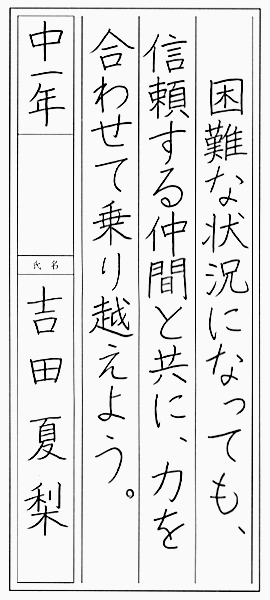 困難な状況になっても、
信頼する仲間と共に、力を
合わせて乗り越えよう。
中一年
氏名
吉田夏梨